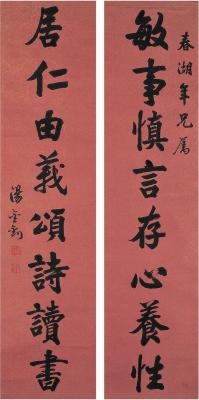 春湖年兄屬
敏事慎言存心養性
居仁由義頌詩讀書
湯金釗